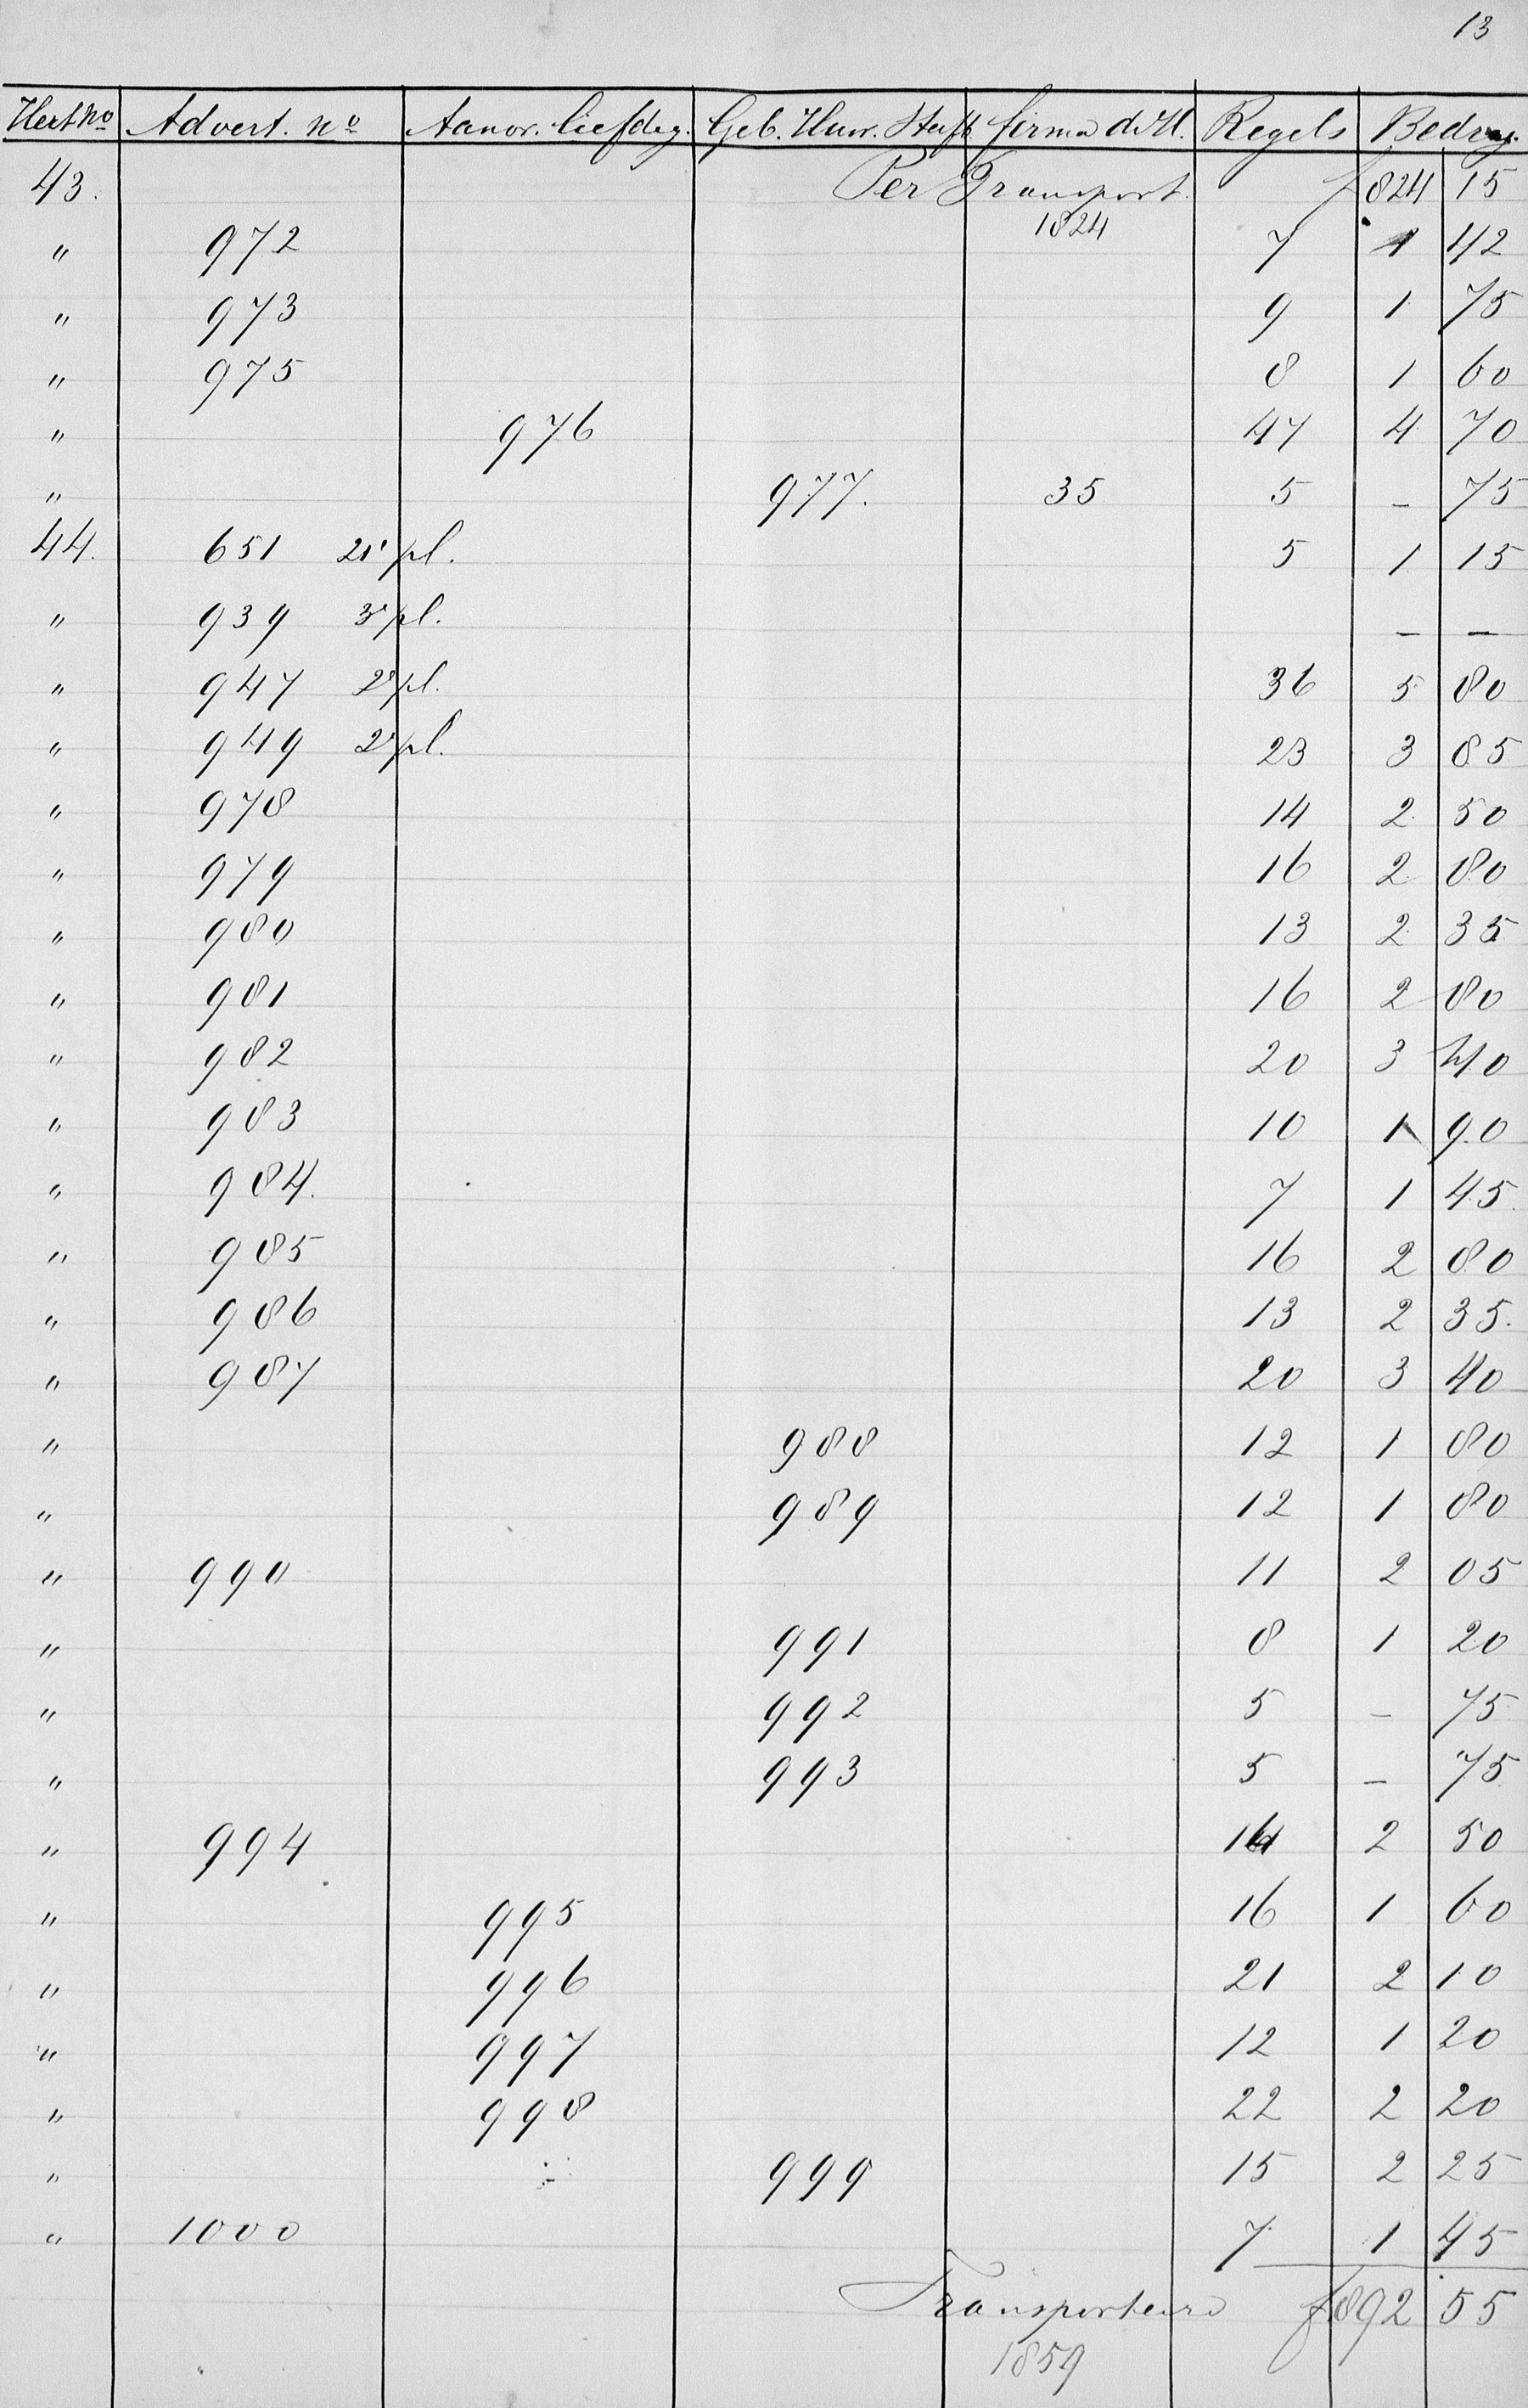 13
No Advert. no Aanvr. liefdeg. Geb. Huw. Sterft firma d. H. Regels Bedrag.
43. Per Transport f 824 15
1824
" 972 7 1 42
" 973 9 1 75
" 975 8 1 60
" 976 47 4 70
" 977. 35 5 - 75
44. 651 2e pl. 5 1 15
" 939 3e pl. - -
" 947 2e pl. 36 5 80
" 949 2e pl. 23 3 85
" 978 14 2 50
" 979 16 2 80
" 980 13 2 35
" 981 16 2 80
" 982 20 3 40
" 983 10 1 90
" 984. 7 1 45.
" 985 16 2 80
" 986 13 2 35.
" 987 20 3 40
" 988 12 1 80
" 989 12 1 80
" 990 11 2 05
" 991 8 1 20
" 992 5 - 75
" 993 5 - 75
" 994 14 2 50
" 995 16 1 60
" 996 21 2 10
" 997 12 1 20
" 998 22 2 20
" 999 15 2 25
" 1000 7 1 45
Transporteere f 892 55
1859